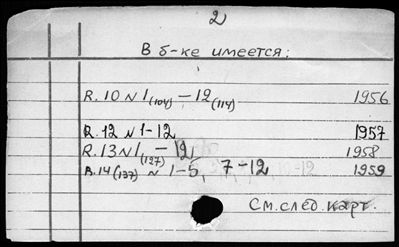 2
В б-ке имеется:
R. 10 N 1 (104) — 12 (114) 1956
R. 12 N 1-12 1957
R. 13 N 1 (127) — 12 1958
R. 14 (137) N 1-5, 7-12 1959
См. след. карт.